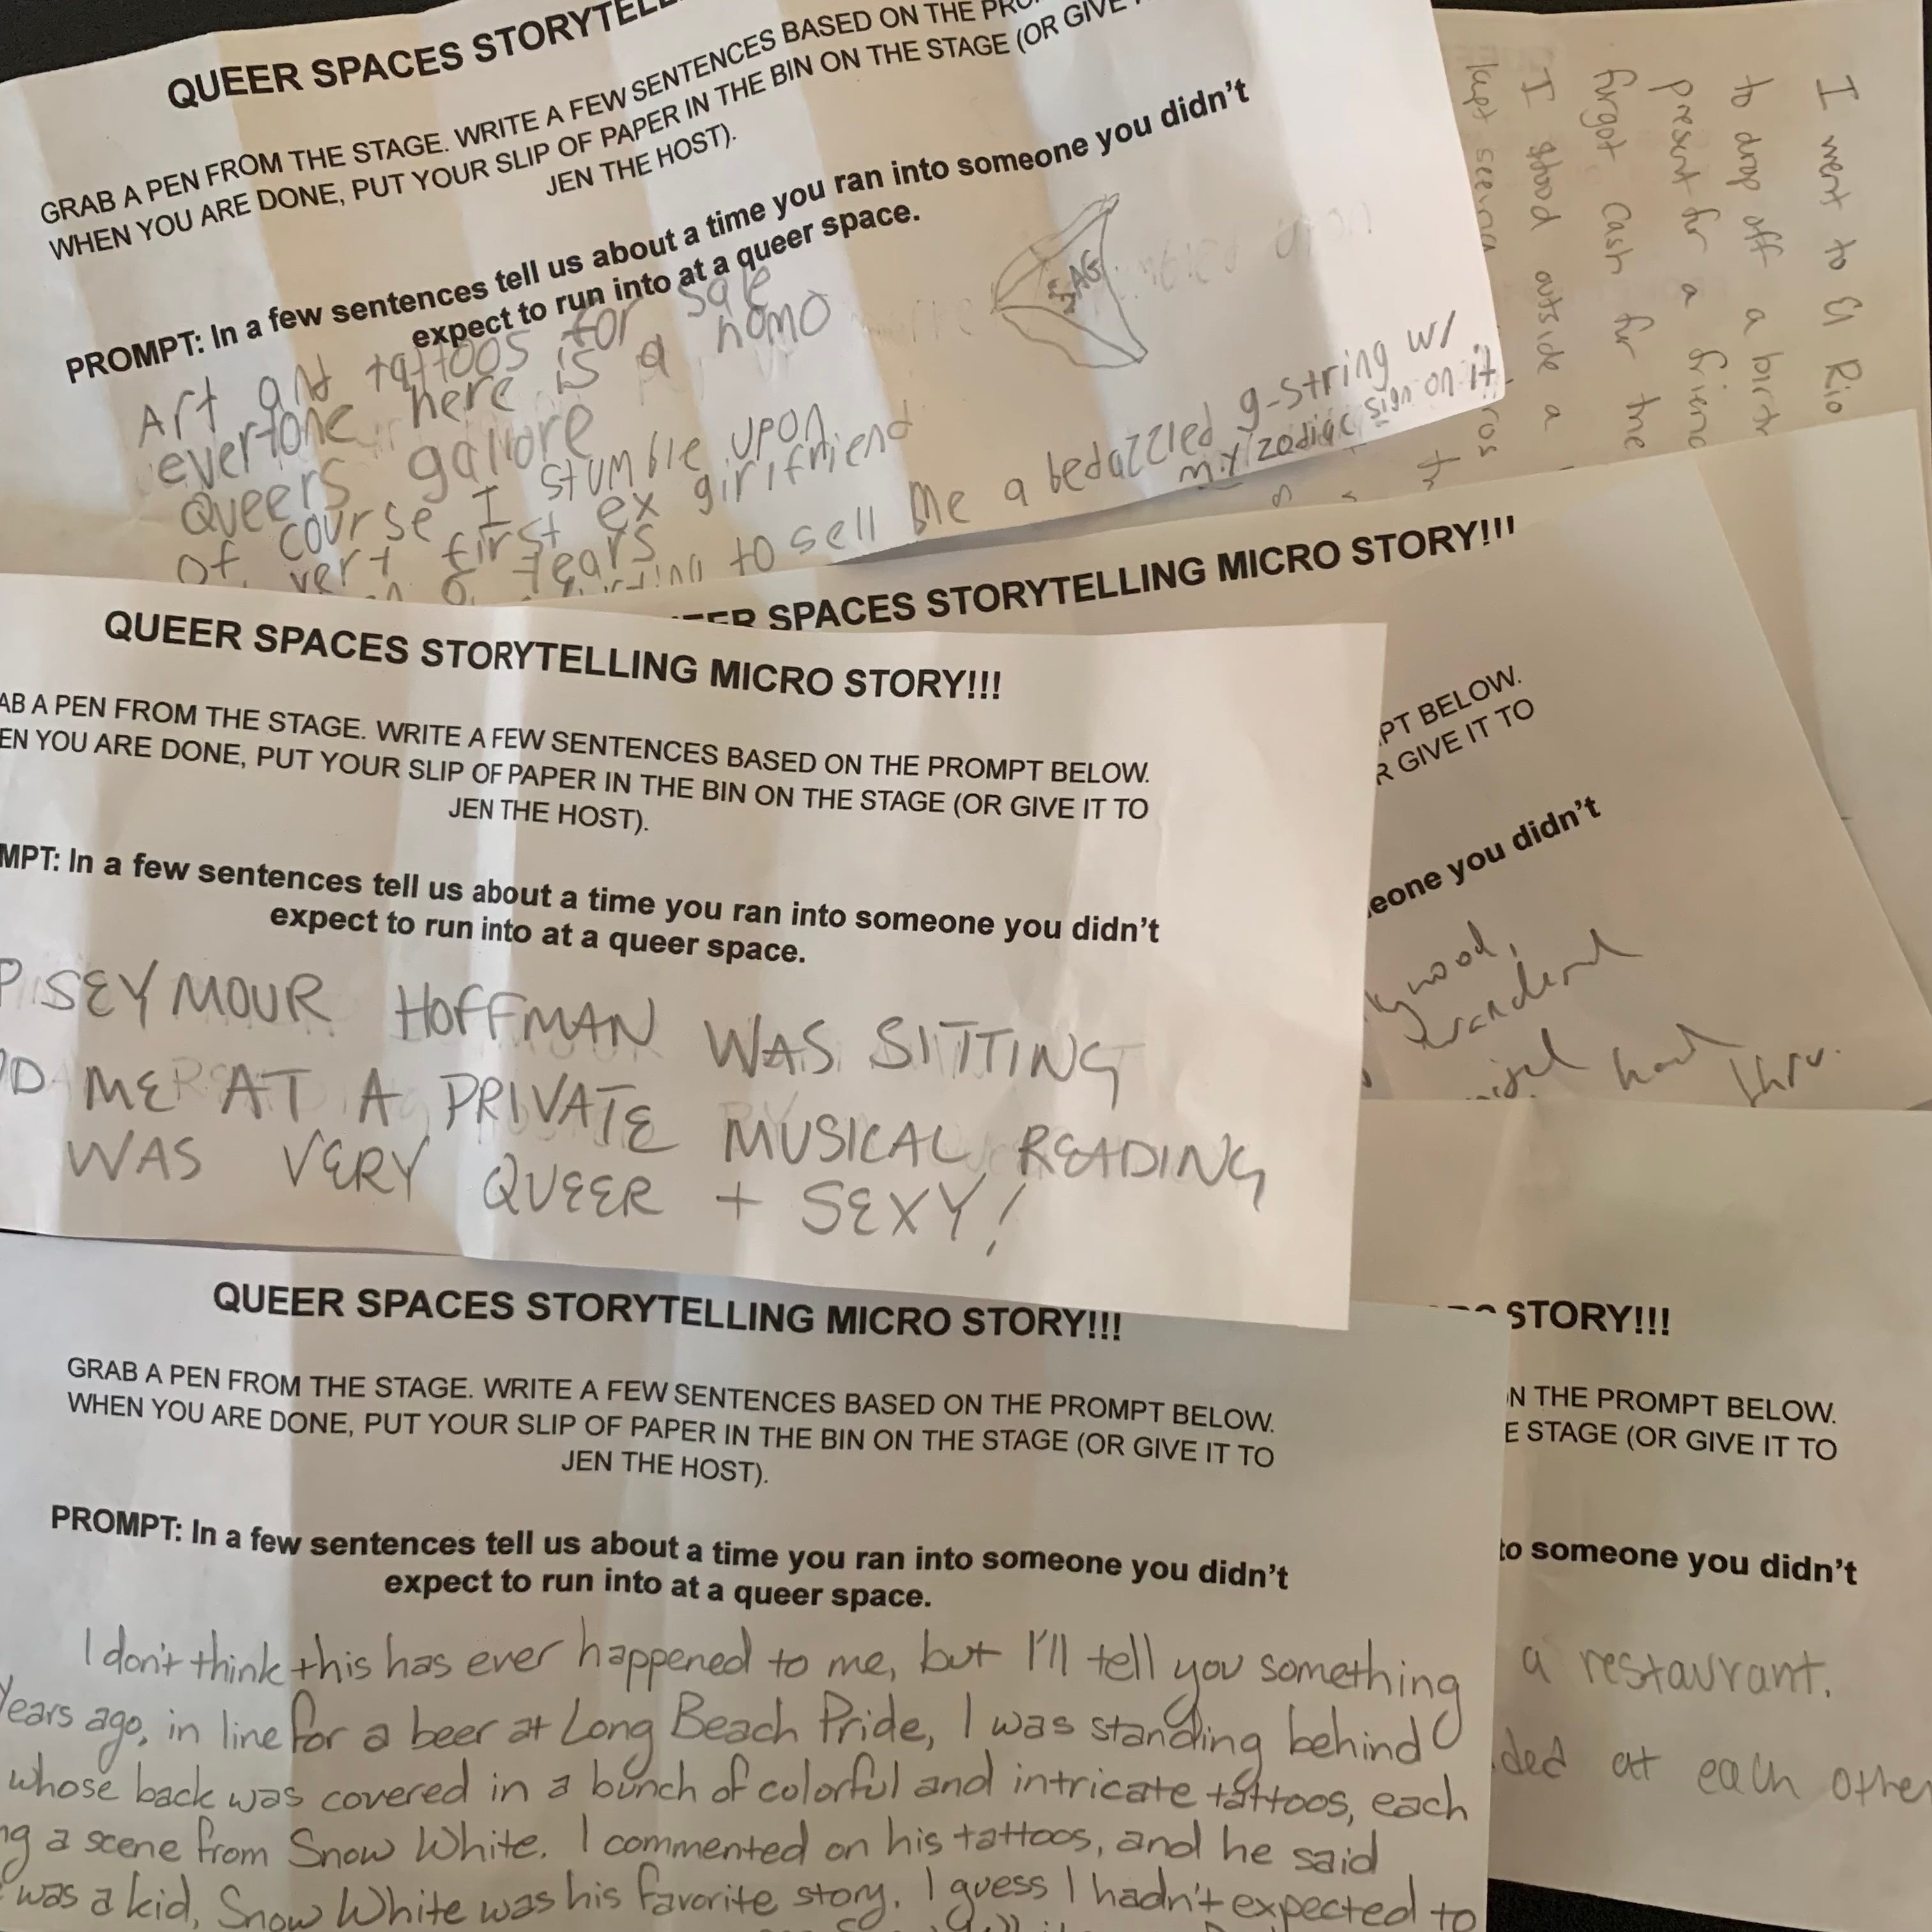 QUEER SPACES STORYTELL
GRAB A PEN FROM THE STAGE. WRITE A FEW SENTENCES BASED ON THE PRO
WHEN YOU ARE DONE, PUT YOUR SLIP OF PAPER IN THE BIN ON THE STAGE (OR GIVE I
JEN THE HOST).
PROMPT: In a few sentences tell us about a time you ran into someone you didn't
expect to run into at a queer space.
Art and tattoos for sale
everyone here is a homo
Queers galore
of course I stumble upon
very first ex girlfriend
years
to sell me a bedazzled g-string w/
my zodiac sign on it
SAG
I went to El Rio
to drop off a birt
present for a frien
forgot cash for the
I stood outside a
kept seeing
SPACES STORYTELLING MICRO STORY!!!
PT BELOW.
R GIVE IT TO
eone you didn't
QUEER SPACES STORYTELLING MICRO STORY!!!
AB A PEN FROM THE STAGE. WRITE A FEW SENTENCES BASED ON THE PROMPT BELOW.
EN YOU ARE DONE, PUT YOUR SLIP OF PAPER IN THE BIN ON THE STAGE (OR GIVE IT TO
JEN THE HOST).
MPT: In a few sentences tell us about a time you ran into someone you didn't
expect to run into at a queer space.
P SEYMOUR HOFFMAN WAS SITTING
D ME AT A PRIVATE MUSICAL READING
WAS VERY QUEER + SEXY!
QUEER SPACES STORYTELLING MICRO STORY!!!
GRAB A PEN FROM THE STAGE. WRITE A FEW SENTENCES BASED ON THE PROMPT BELOW.
WHEN YOU ARE DONE, PUT YOUR SLIP OF PAPER IN THE BIN ON THE STAGE (OR GIVE IT TO
JEN THE HOST).
PROMPT: In a few sentences tell us about a time you ran into someone you didn't
expect to run into at a queer space.
I don't think this has ever happened to me, but I'll tell you something
Years ago, in line for a beer at Long Beach Pride, I was standing behind
whose back was covered in a bunch of colorful and intricate tattoos, each
ng a scene from Snow White. I commented on his tattoos, and he said
was a kid, Snow White was his favorite story. I guess I hadn't expected to
STORY!!!
N THE PROMPT BELOW.
E STAGE (OR GIVE IT TO
to someone you didn't
a restaurant.
ded at each other